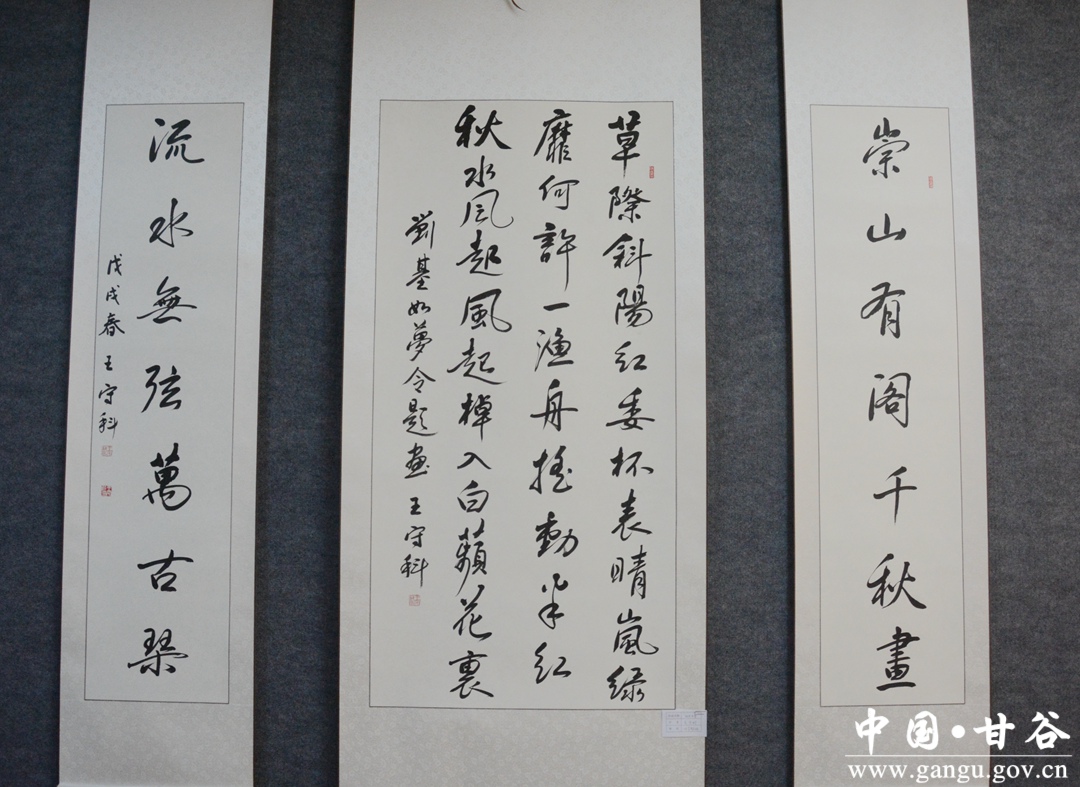 崇山有阁千秋畫
草際斜陽红委林表晴嵐绿
靡何許一渔舟摇動半江
秋水风起風起棹入白蘋花裏
劉基如夢令題画 王守科
流水無弦萬古琴
戊戌春 王守科
中国·甘谷
www.gangu.gov.cn